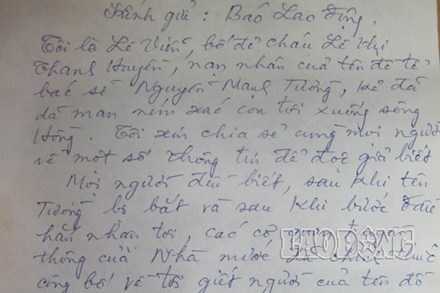 Kính gửi : Báo Lao Động.
Tôi là Lê Viễn, bố đẻ cháu Lê Thị
Thanh Huyền, nạn nhân của tên đồ tể
bác sĩ Nguyễn Mạnh Tường, kẻ đã
dã man ném xác con tôi xuống sông
Hồng. Tôi xin chia sẻ cùng mọi người
về một số thông tin để đọc giả biết
Mọi người đều biết, sau khi tên
Tường bị bắt và sau khi bước đầu
hắn nhận tội, các cơ
thống của Nhà nước
công bố về tội giết người của tên đồ